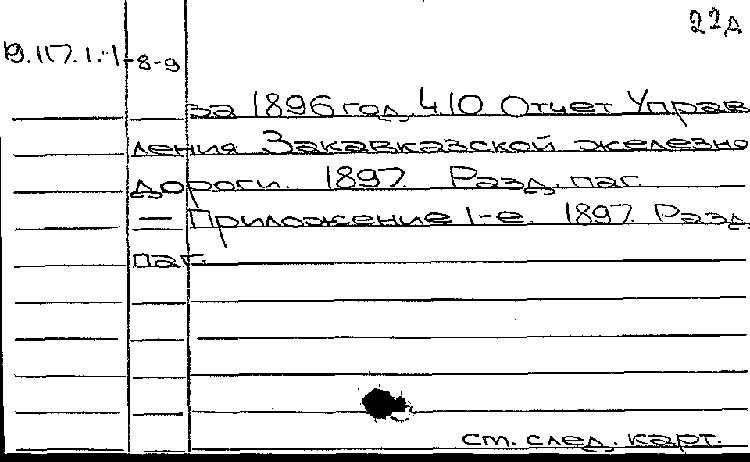 22д
19.117.1.-1-8-9
за 1896 год. Ч.10 Отчет Управ
ления Закавказской железно
дороги. 1897. Разд. паг.
— Приложение 1-е. 1897. Разд.
паг.
ст. след. карт.